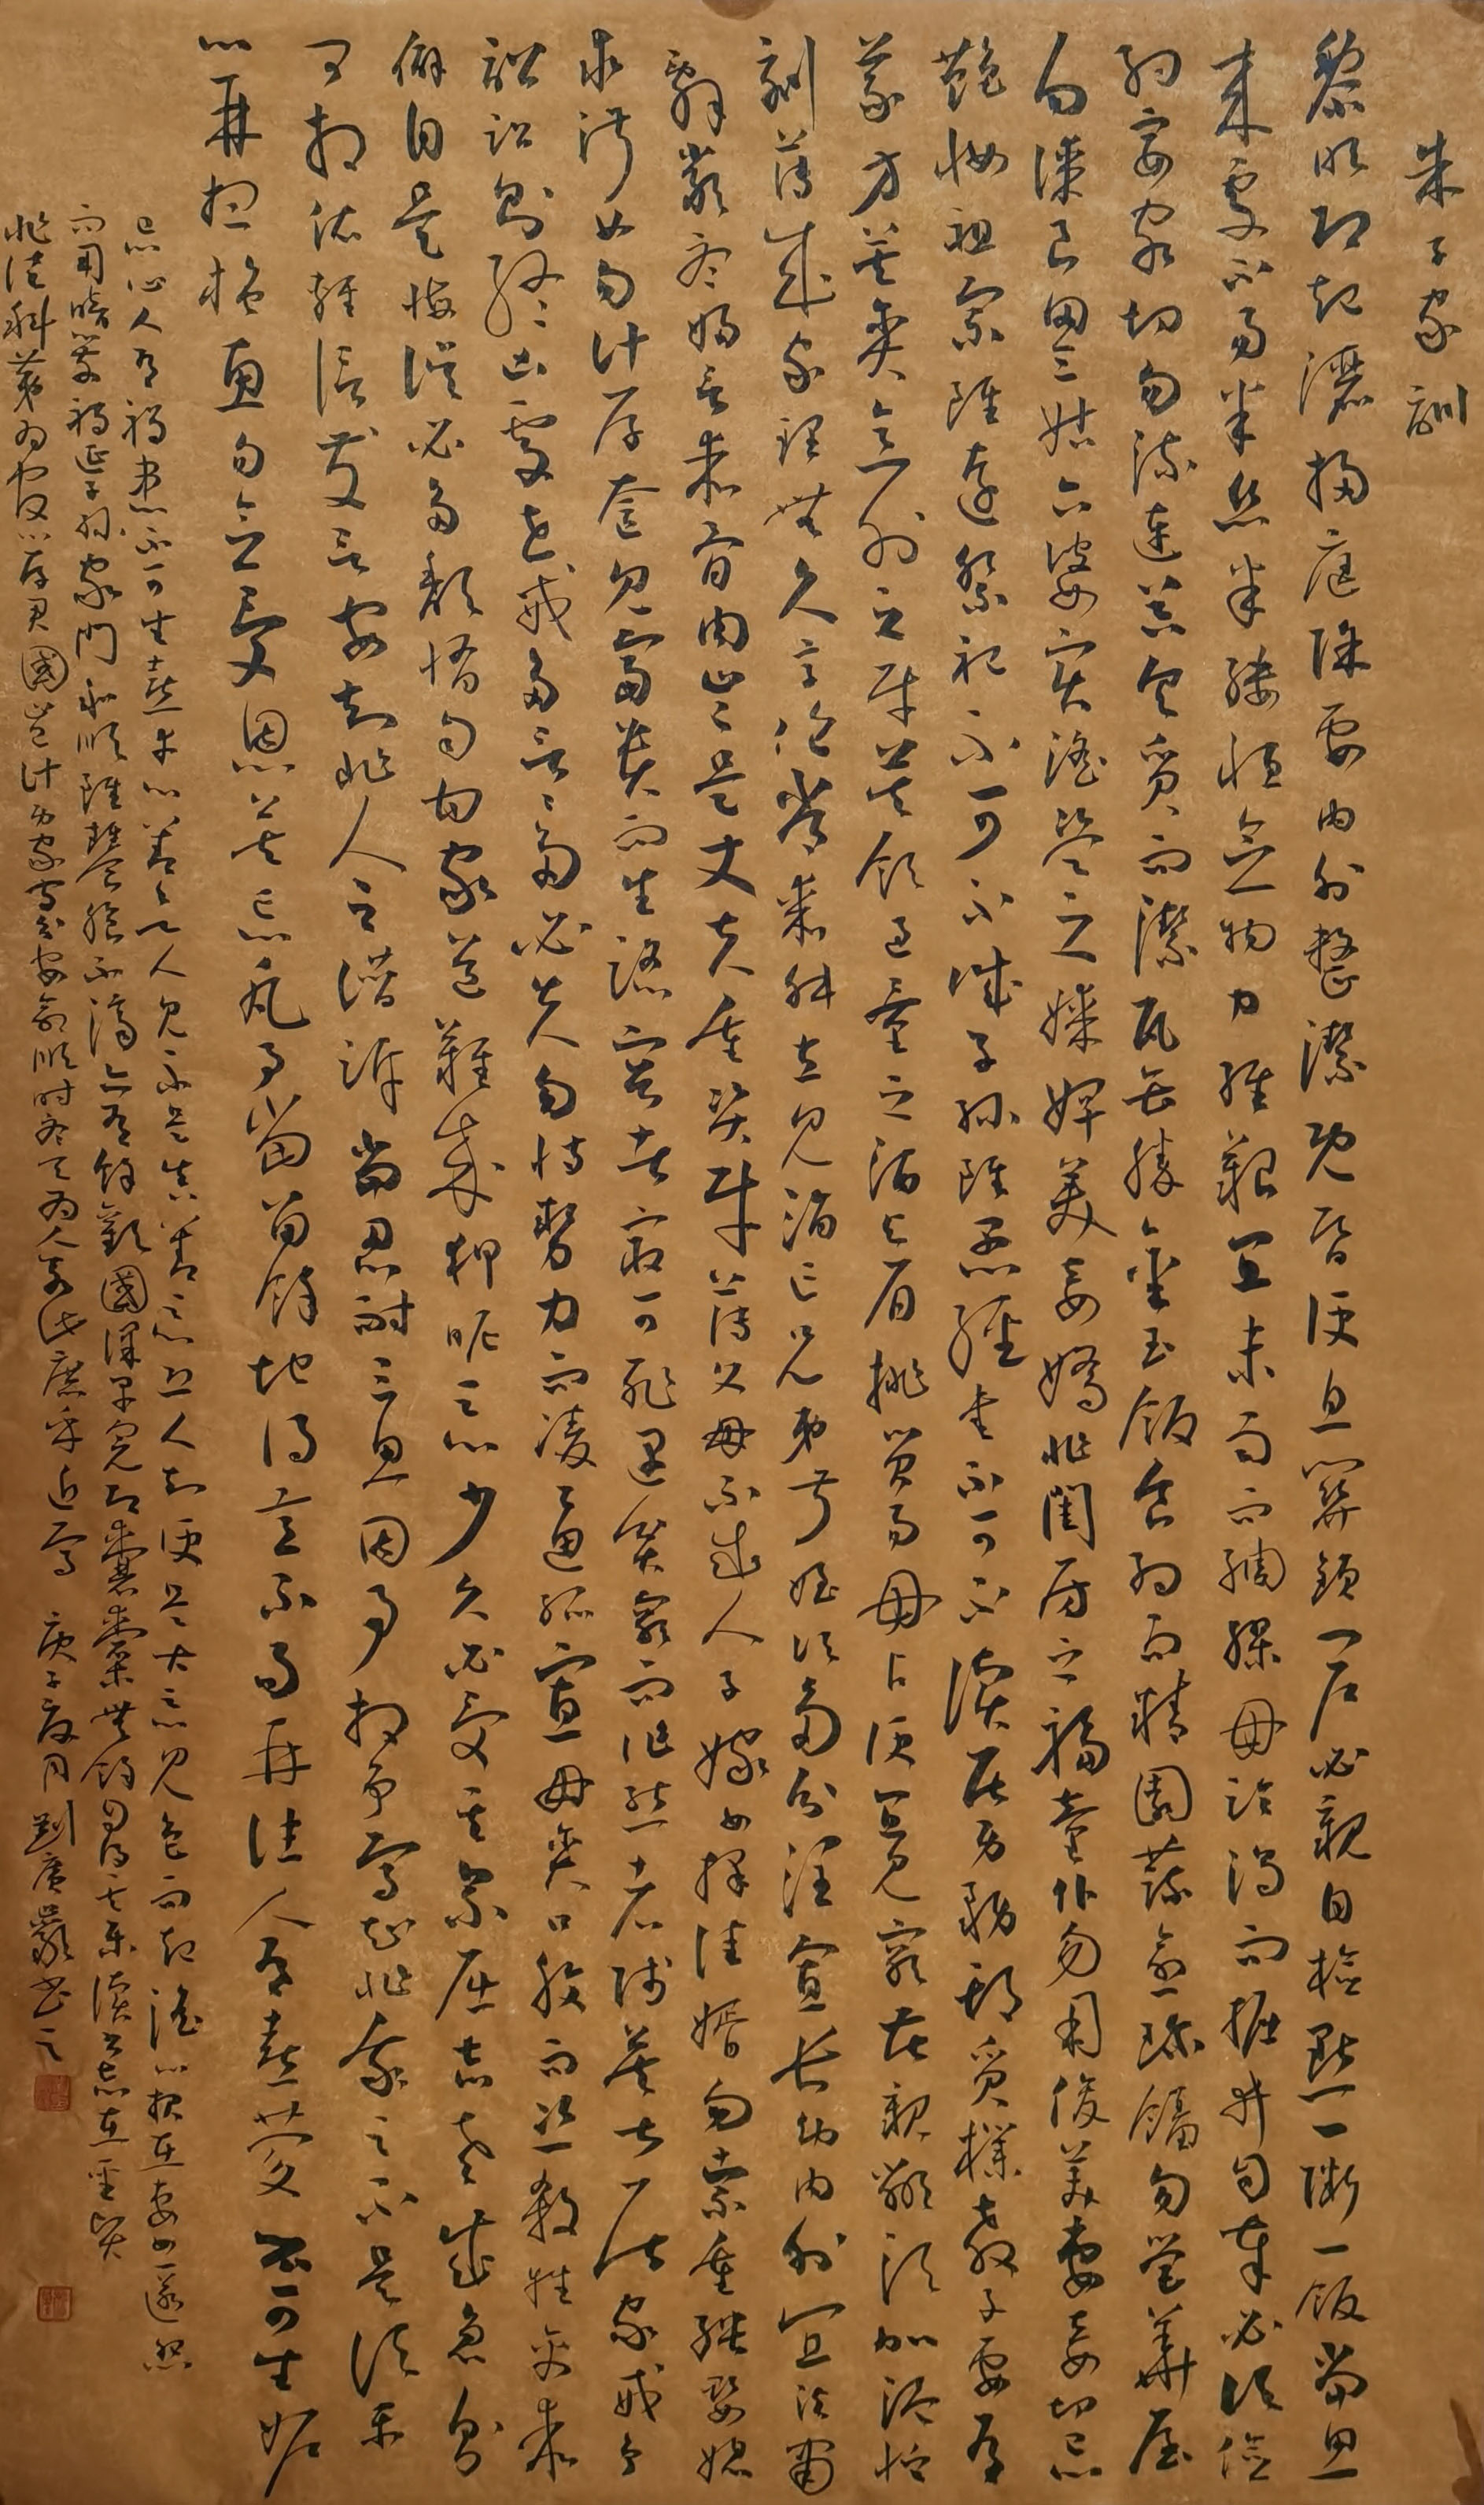 朱子家訓
黎明即起灑掃庭除要内外整潔既昏便息關鎖門户必親自檢點一粥一飯當思
来處不易半絲半縷恒念物力維艱宜未雨而綢繆毋臨渴而掘井自奉必須儉
約宴客切勿流連器具質而潔瓦缶勝金玉飲食約而精園蔬愈珍饈勿營華屋
勿謀良田三姑六婆實淫盜之媒婢美妾嬌非閨房之福童仆勿用俊美妻妾切忌
艷妝祖宗雖遠祭祀不可不誠子孫雖愚經書不可不讀居身務期質樸教子要有
義方莫貪意外之財莫飲過量之酒與肩挑貿易毋占便宜見窮苦親鄰須加温恤
刻薄成家理無久享倫常乖舛立見消亡兄弟叔侄須多分潤寡長幼内外宜法肅
辭嚴聽婦言乖骨肉豈是丈夫重資財薄父母不成人子嫁女擇佳婿勿索重聘娶媳
求淑女勿計厚奩見富貴而生諂容者最可耻遇貧窮而作驕態者賤莫甚居家戒争
訟訟則終凶處世戒多言言多必失勿恃勢力而凌逼孤寡毋貪口腹而恣殺牲禽乖
僻自是悔误必多頹惰自甘家道難成狎昵惡少久必受其累屈志老成急則
可相依輕信發言安知非人之譖訴當忍耐三思因事相争焉知非我之不是須平
心再想施惠勿念受恩莫忘凡事當留餘地得意不可再往人有喜慶不可生妒
忌心人有禍患不可生喜幸心善欲人見不是真善惡恐人知便是大惡見色而起淫心報在妻女匿怨
而用暗箭禍延子孫家門和順雖饔飧不濟亦有餘歡國課早完即囊橐無餘自得至樂讀書志在聖賢
非徒科第為官心存君國豈計身家守分安命順時聽天為人若此庶乎近焉 庚子夏月劉廣嚴書之